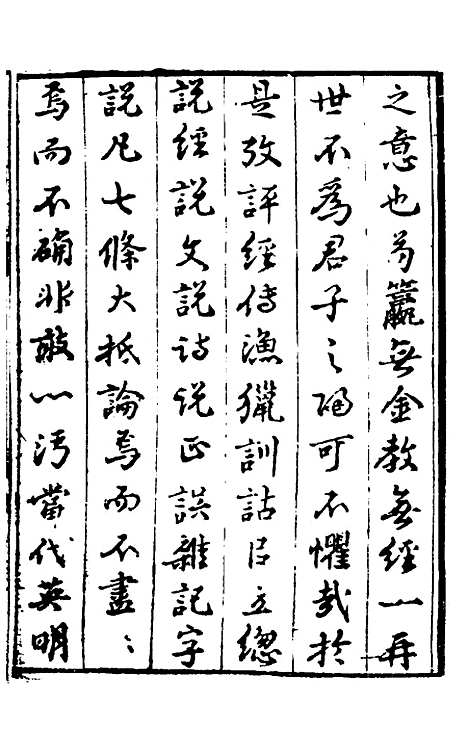 之意也苟籯無金教無經一再
世不為君子之歸可不懼哉於
是攷評經傳漁獵訓詁臣立總
說經說文說詩說正誤雜記字
說凡七條大抵論焉而不盡〻
焉而不確非敢以污當代英明